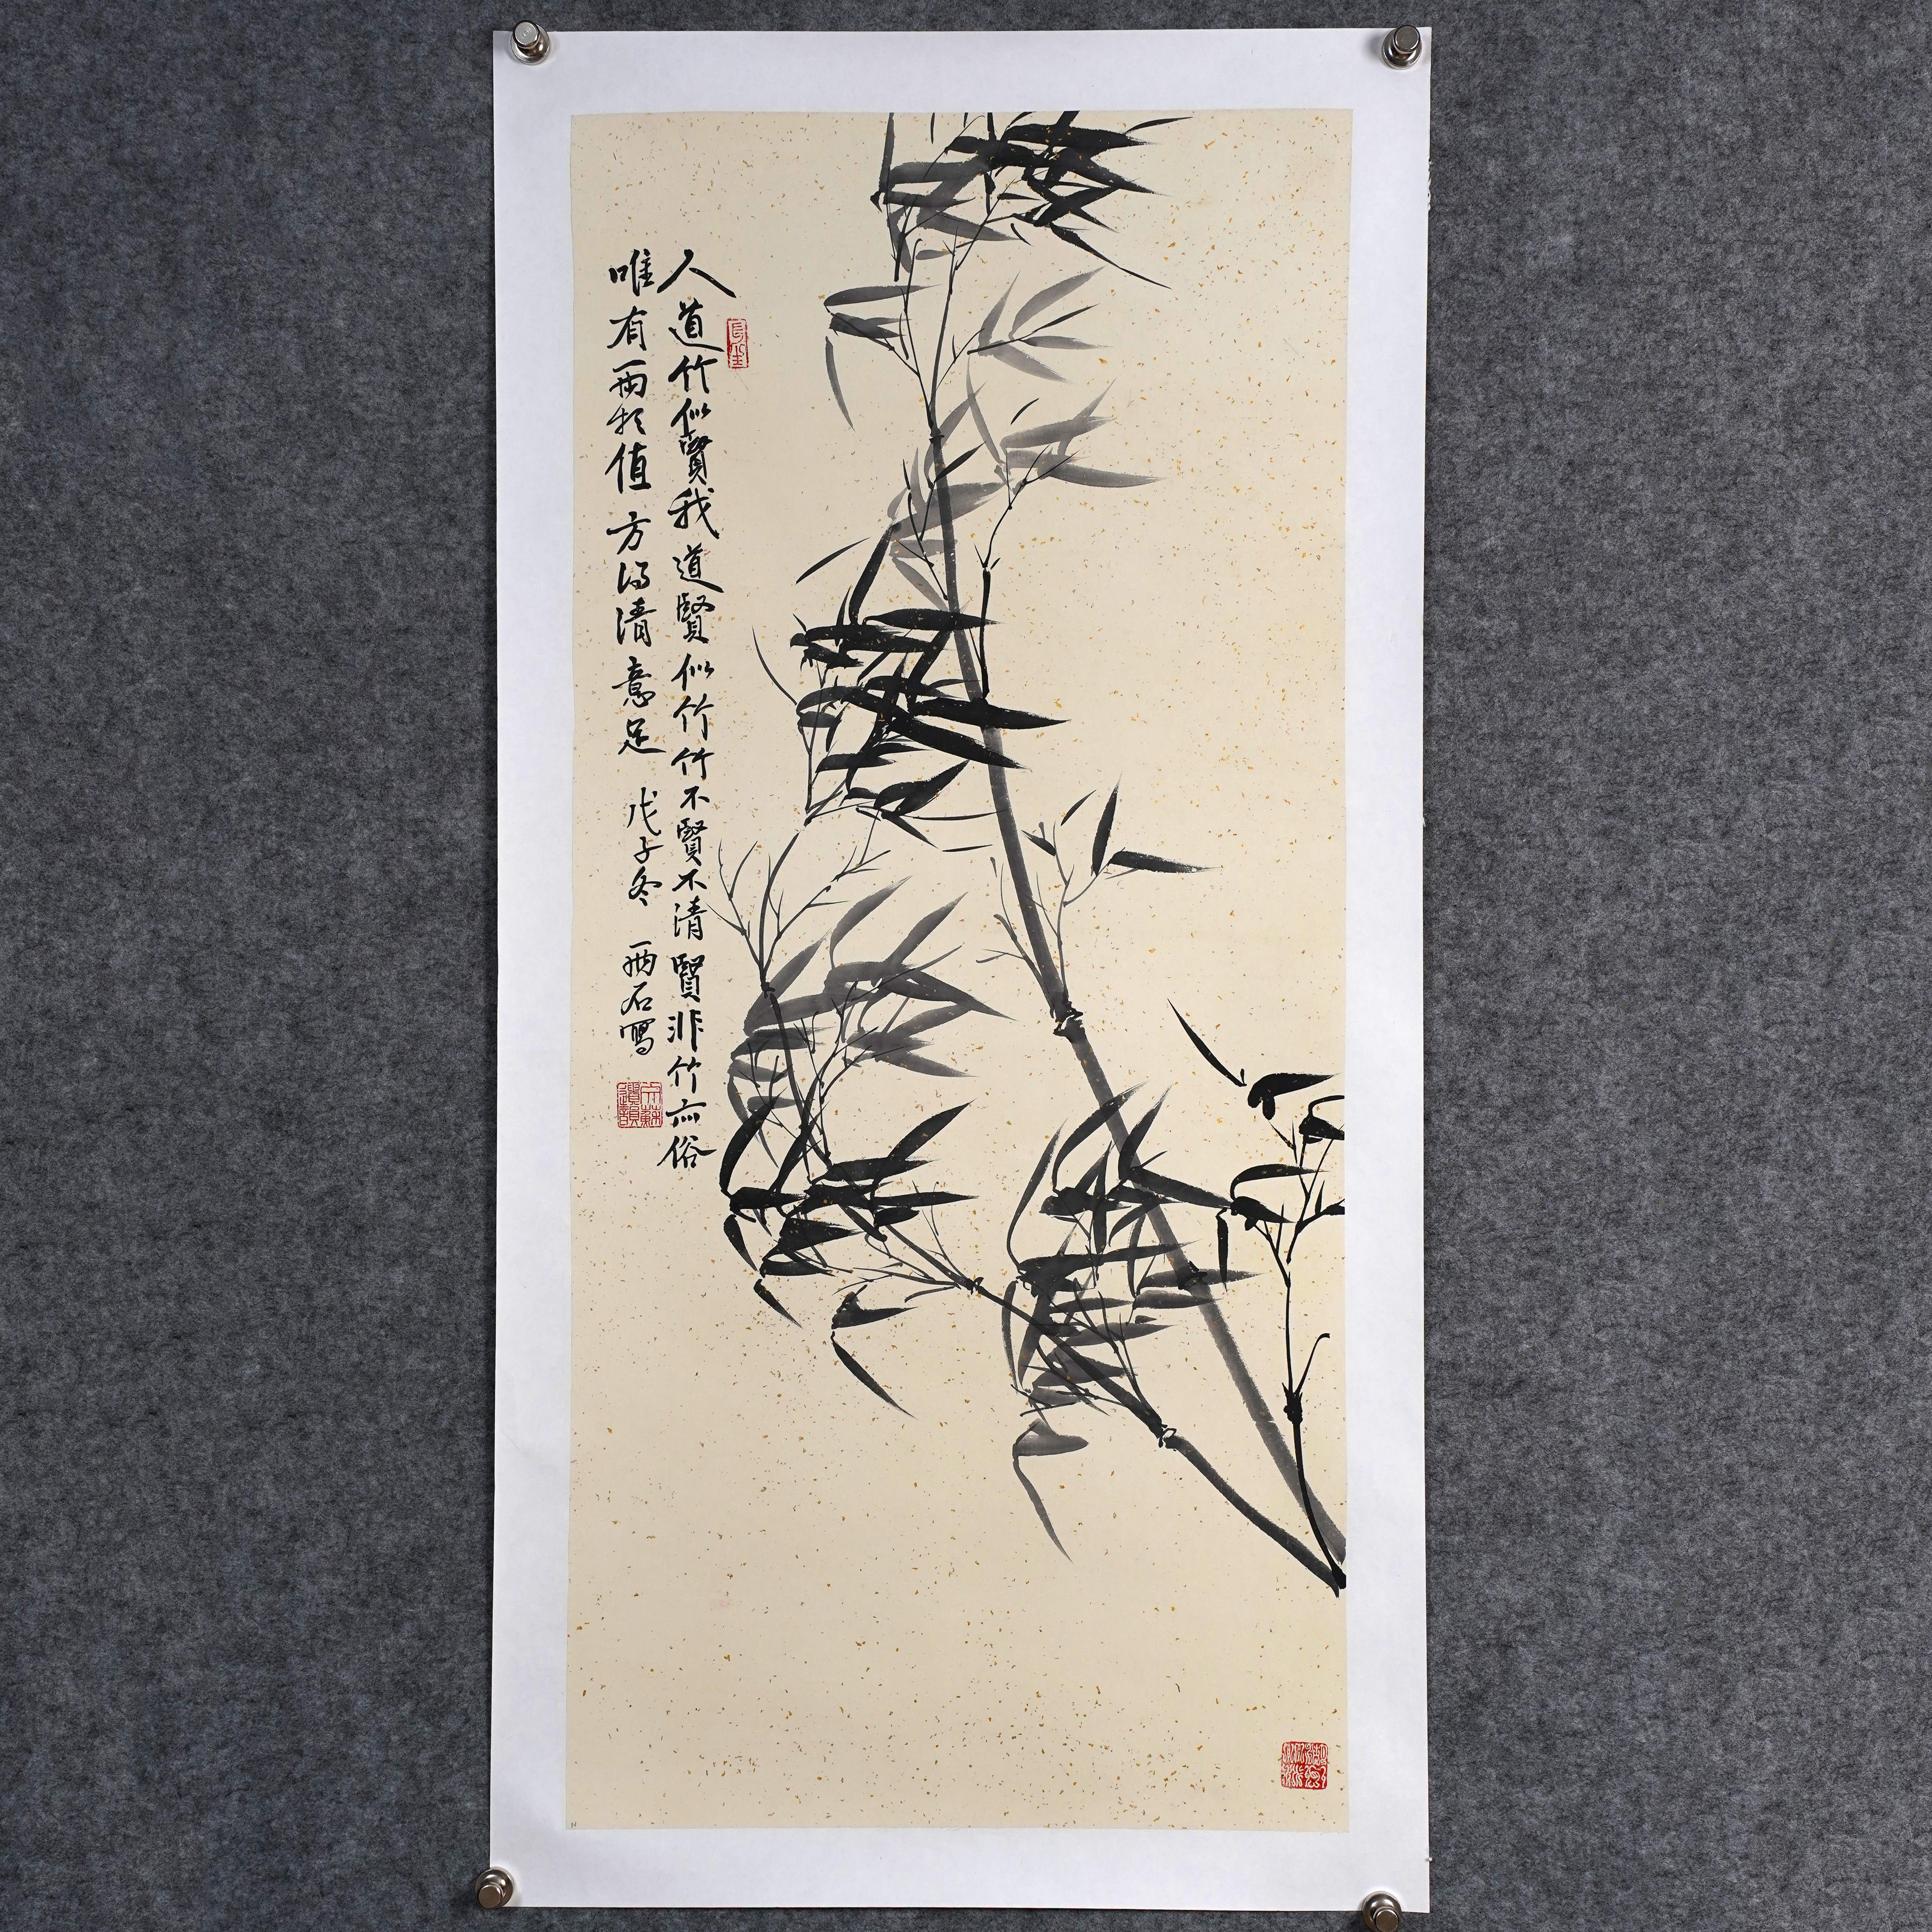 人道竹似賢我道賢似竹竹不賢不清賢非竹亦俗
唯有兩相值方得清意足
戊子冬
兩石寫